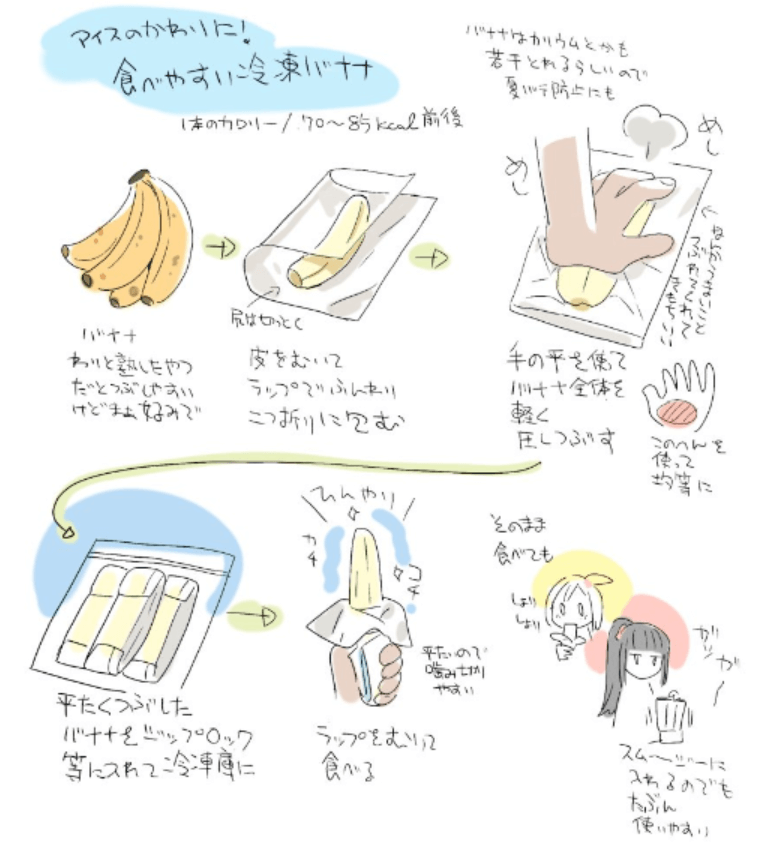 アイスのかわりに!
食べやすい冷凍バナナ
1本のカロリー/70〜85kcal前後
バナナはカリウムとかも
若干とれるらしいので
夏バテ防止にも
バナナ
わりと熟したやつ
だとつぶしやすい
けどまぁ好みで
尻は切っとく
皮をむいて
ラップでふんわり
二つ折りに包む
めし
めし
←なんかうまいこと
つぶれてくれて
きもちいい
手の平を使って
バナナ全体を
軽く
圧しつぶす
このへんを
使って
均等に
平たくつぶした
バナナをジップロック
等に入れて冷凍庫に
ひんやり
カチ
コチ
平たいので
噛み切り
やすい
ラップをむいて
食べる
そのまま
食べても
しょり
しょり
ガッ
ガー
スムージーに
入れるのでも
たぶん
使いやすい